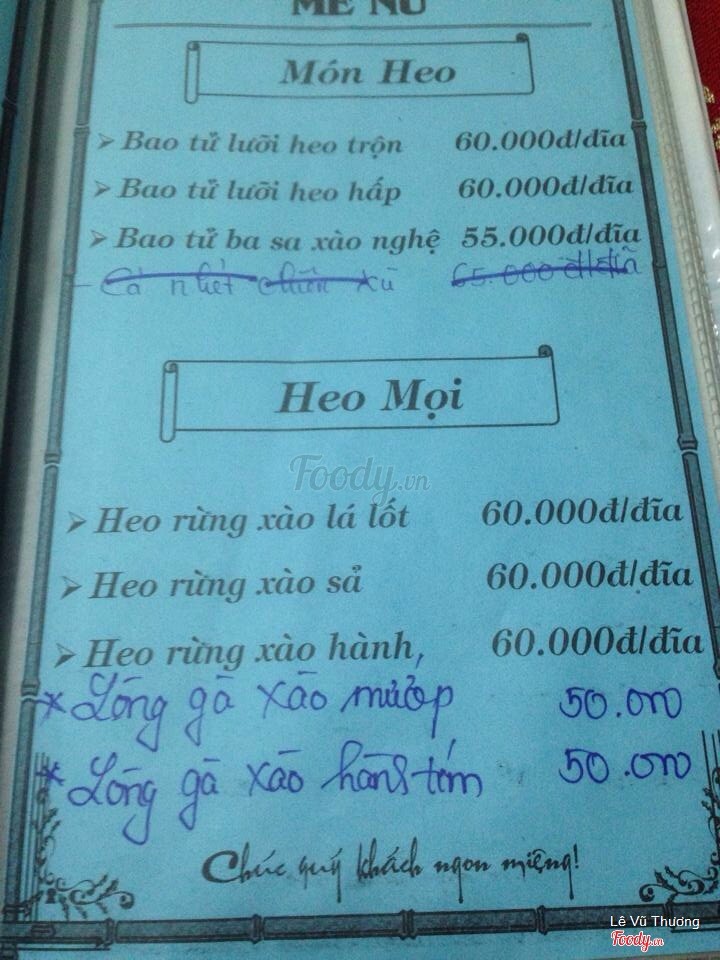 ME NU
Món Heo
➢ Bao tử lưỡi heo trộn 60.000đ/đĩa
➢ Bao tử lưỡi heo hấp 60.000đ/đĩa
➢ Bao tử ba sa xào nghệ 55.000đ/đĩa
- Cà nhét chiên xù 65.000đ/đĩa
Heo Mọi
Foody.vn
➢ Heo rừng xào lá lốt 60.000đ/đĩa
➢ Heo rừng xào sả 60.000đ/đĩa
➢ Heo rừng xào hành, 60.000đ/đĩa
* Lòng gà xào mướp 50.000
* Lòng gà xào hành tím 50.000
Chúc quý khách ngon miệng!
Lê Vũ Thương
Foody.vn